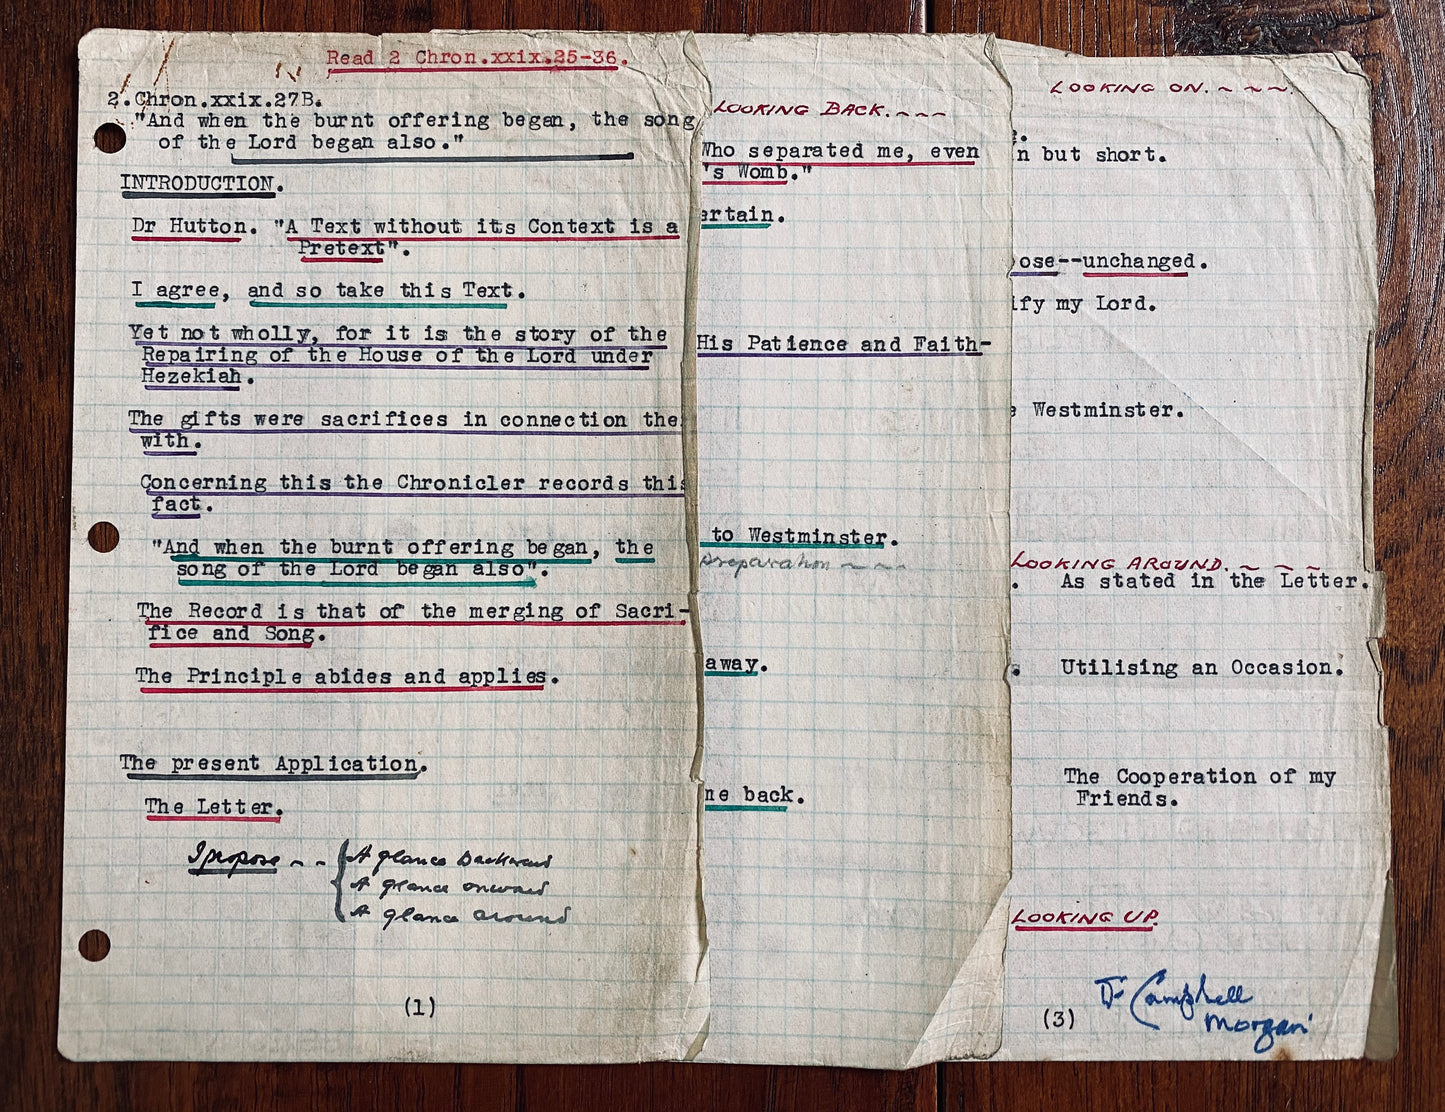 Read 2 Chron.xxix.25-36.
2.Chron.xxix.27B.
"And when the burnt offering began, the song
of the Lord began also."
INTRODUCTION.
Dr Hutton. "A Text without its Context is a
Pretext".
I agree, and so take this Text.
Yet not wholly, for it is the story of the
Repairing of the House of the Lord under
Hezekiah.
The gifts were sacrifices in connection the
with.
Concerning this the Chronicler records this
fact.
"And when the burnt offering began, the
song of the Lord began also".
The Record is that of the merging of Sacri-
fice and Song.
The Principle abides and applies.
The present Application.
The Letter.
I propose ~ ~ { A glance Backward
A glance onward
A glance around
(1)
LOOKING BACK. ~ ~ ~
Who separated me, even
's Womb."
ertain.
His Patience and Faith-
to Westminster.
preparation ~ ~ ~
away.
ne back.
LOOKING ON. ~ ~ ~.
n but short.
ose--unchanged.
ify my Lord.
e Westminster.
LOOKING AROUND. ~ ~ ~
. As stated in the Letter.
s. Utilising an Occasion.
The Cooperation of my
Friends.
LOOKING UP.
(3)
Campbell
Morgan